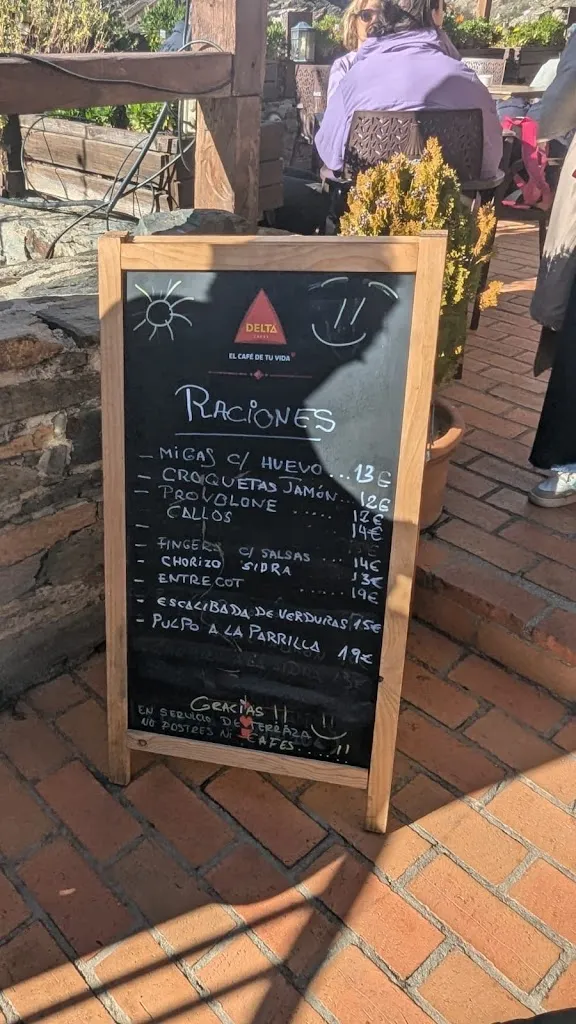 DELTA
CAFÉS
EL CAFÉ DE TU VIDA
RACIONES
- MIGAS C/ HUEVO...13€
- CROQUETAS JAMÓN..12€
- PROVOLONE ..... 12€
- CALLOS 14€
- FINGERS C/ SALSAS 14€
- CHORIZO SIDRA 13€
- ENTRECOT ...... 19€
- ESCALIBADA DE VERDURAS 15€
- PULPO A LA PARRILLA 19€
GRACIAS!!
EN SERVICIO DE TERRAZA
NO POSTRES NI CAFES...!!